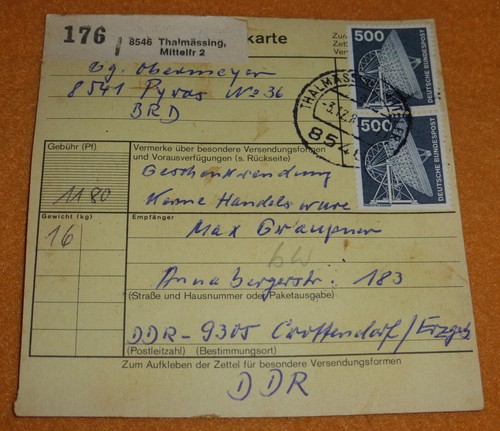 176
8546 Thalmässing,
Mittelfr 2
karte
Zu
Zet
Ver
500
DEUTSCHE BUNDESPOST
500
DEUTSCHE BUNDESPOST
THALMÄSS
-3.12.8
8546
Obermeyer
8541 Pyras No 36
BRD
Gebühr (Pf)
1180
Vermerke über besondere Versendungsformen
und Vorausverfügungen (s. Rückseite)
Geschenksendung
Keine Handelsware
Gewicht (kg)
16
Empfänger
Max Graupner
Annabergerstr. 183
(Straße und Hausnummer oder Paketausgabe)
DDR-9305 Crottendorf/Erzgeb
(Postleitzahl) (Bestimmungsort)
Zum Aufkleben der Zettel für besondere Versendungsformen
DDR